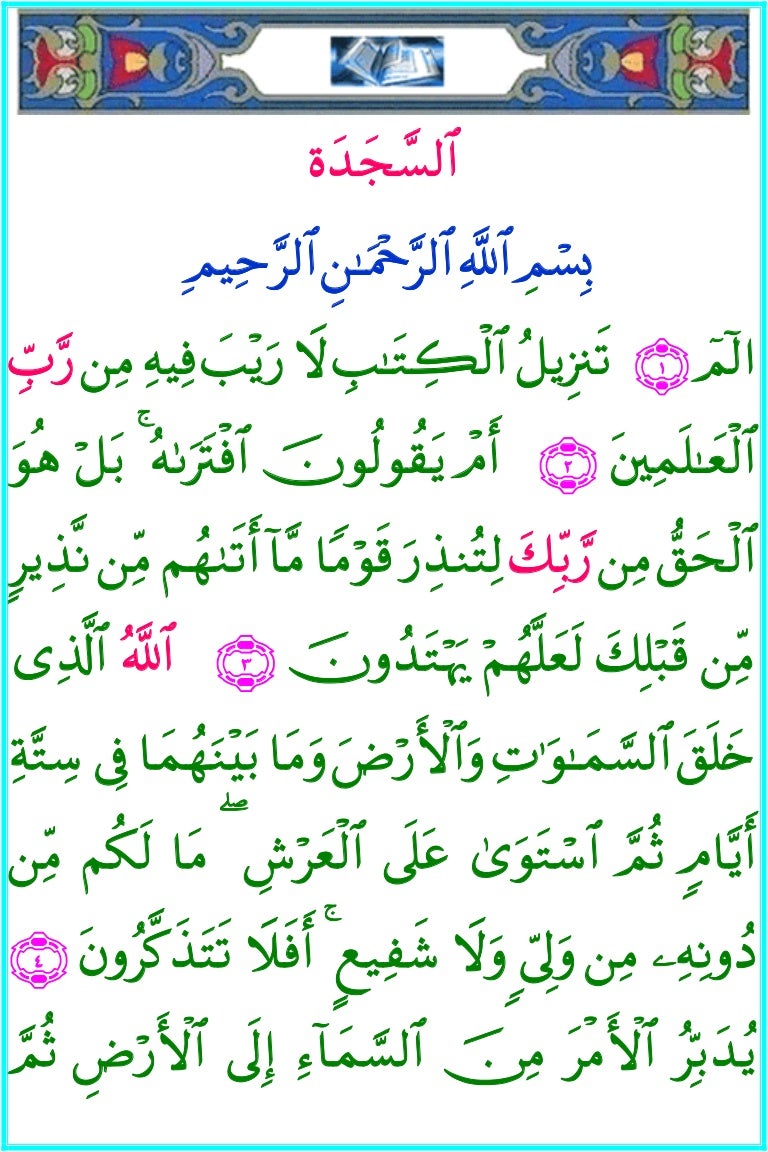 ٱلسَّجَدَة
بِسْمِ ٱللَّهِ ٱلرَّحْمَـٰنِ ٱلرَّحِيمِ
الٓمٓ ۝١ تَنزِيلُ ٱلْكِتَـٰبِ لَا رَيْبَ فِيهِ مِن رَّبِّ
ٱلْعَـٰلَمِينَ ۝٢ أَمْ يَقُولُونَ ٱفْتَرَىٰهُ ۚ بَلْ هُوَ
ٱلْحَقُّ مِن رَّبِّكَ لِتُنذِرَ قَوْمًا مَّآ أَتَىٰهُم مِّن نَّذِيرٍ
مِّن قَبْلِكَ لَعَلَّهُمْ يَهْتَدُونَ ۝٣ ٱللَّهُ ٱلَّذِى
خَلَقَ ٱلسَّمَـٰوَٰتِ وَٱلْأَرْضَ وَمَا بَيْنَهُمَا فِى سِتَّةِ
أَيَّامٍ ثُمَّ ٱسْتَوَىٰ عَلَى ٱلْعَرْشِ ۖ مَا لَكُم مِّن
دُونِهِۦ مِن وَلِىٍّ وَلَا شَفِيعٍ ۚ أَفَلَا تَتَذَكَّرُونَ ۝٤
يُدَبِّرُ ٱلْأَمْرَ مِنَ ٱلسَّمَآءِ إِلَى ٱلْأَرْضِ ثُمَّ